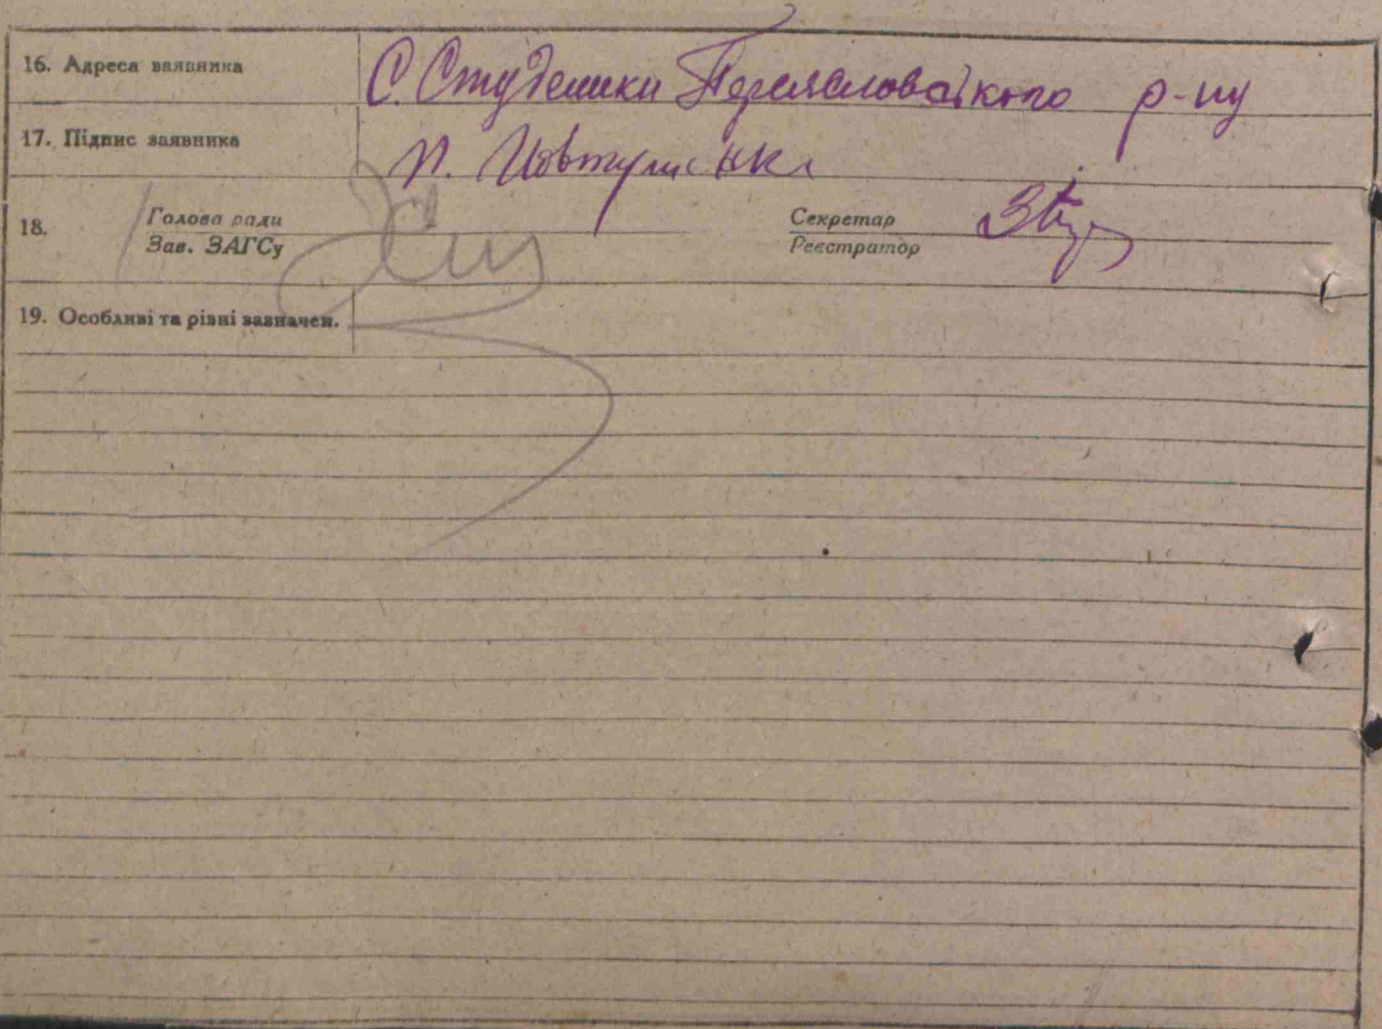 16. Адреса заявника С. Студеники Переяславського р-ну
17. Підпис заявника П.
18. Голова ради Секретар
Зав. ЗАГСу Реєстратор
19. Особливі та різні зазначен.